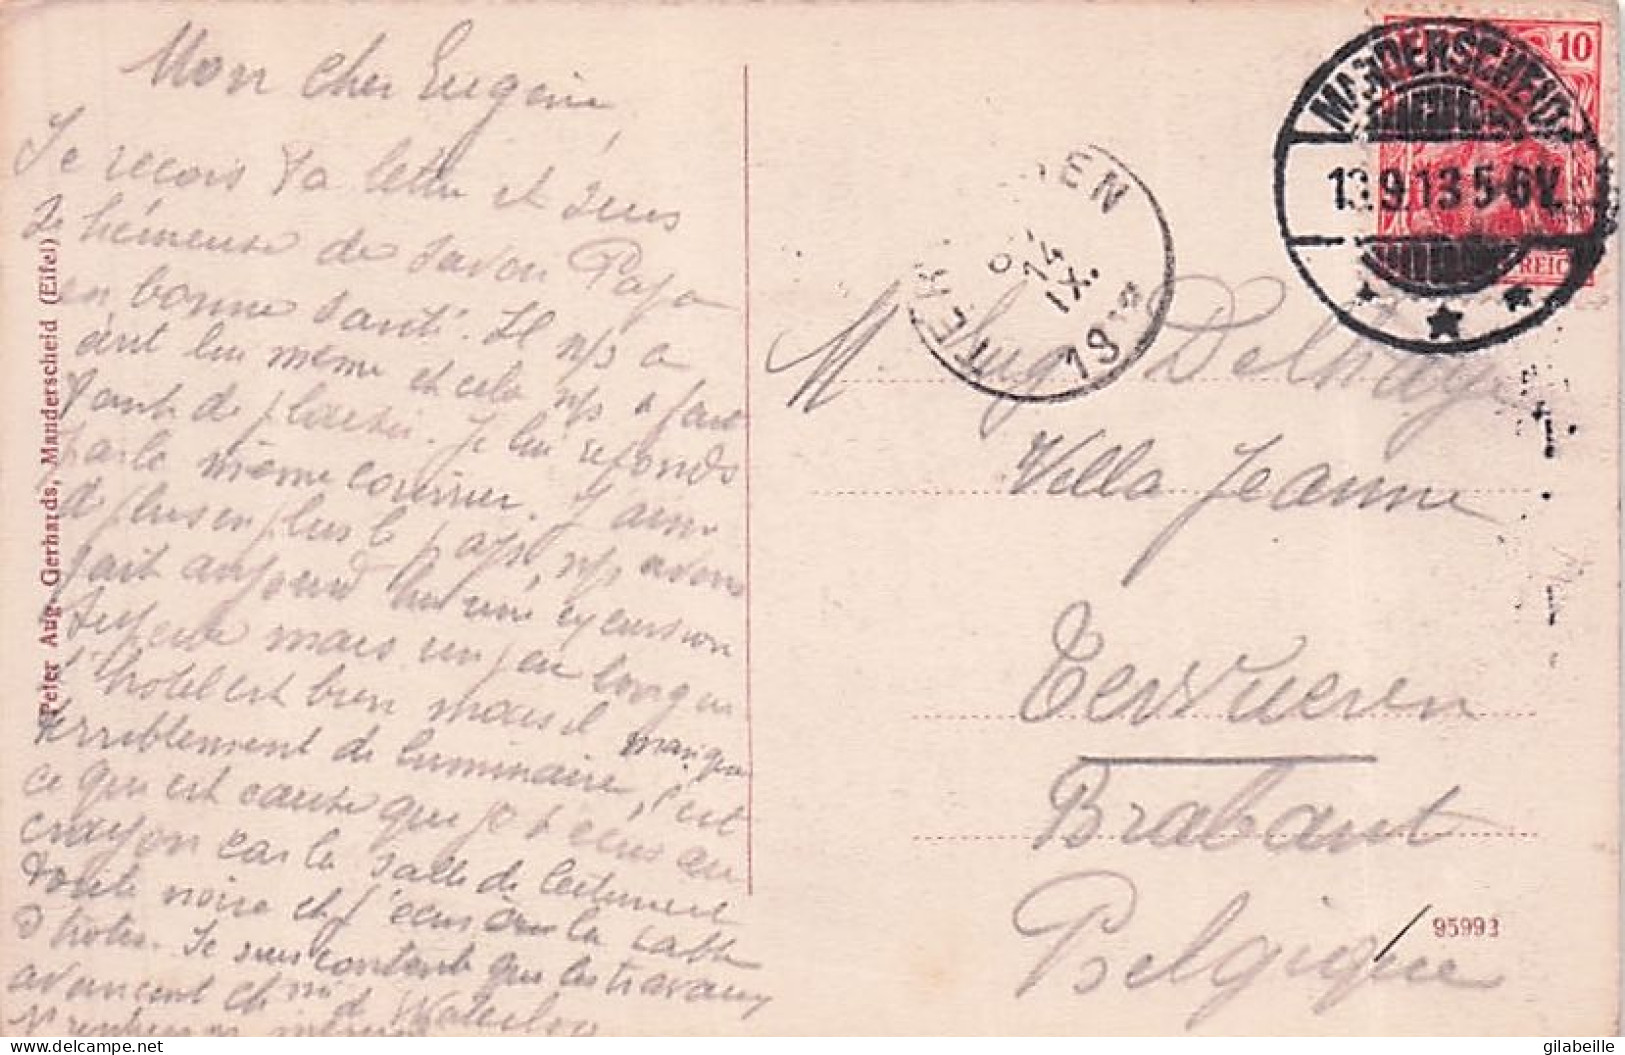 Mon cher Eugène
Je reçois ta lettre et suis
si heureuse de savoir Papa
en bonne santé. Il n/s a
écrit lui même et cela n/s a fait
tant de plaisir. Je lui réponds
par le même courrier. J'aime
de plus en plus le pays, n/s avons
fait aujourd'hui une excursion
superbe mais un peu longue
l'hôtel est bien mais il manque
terriblement de luminaire, c'est
ce qui est cause que je t'écris au
crayon car la salle de lecture est
toute noire et j'écris sur la table
d'hôtes. Je suis contente que les travaux
avancent ch^m de Waterloo
Peter Aug. Gerhards, Manderscheid (Eifel)
MANDERSCHEID
13.9.13 5-6V.
10
REICH
TERVUEREN
14
IX.
19
M Eug Delhaye
Villa Jeanne
Tervueren
Brabant
Belgique
95993
delcampe.net
gilabeille